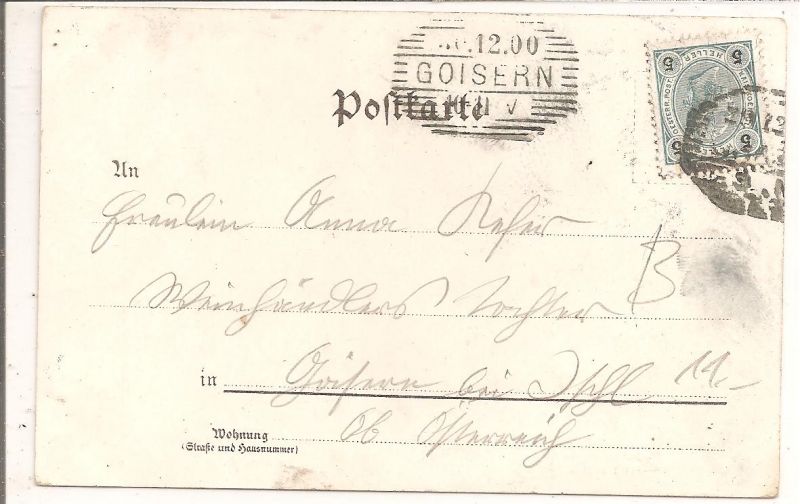 .12.00
GOISERN
10-11 V
Postkarte
5 HELLER 5
OESTERR. POST
5 5
An
Fräulein Anna Kefer
Weinhändlers Tochter B
in Goisern bei Ischl 11.-
Wohnung Ob Österreich
(Straße und Hausnummer)